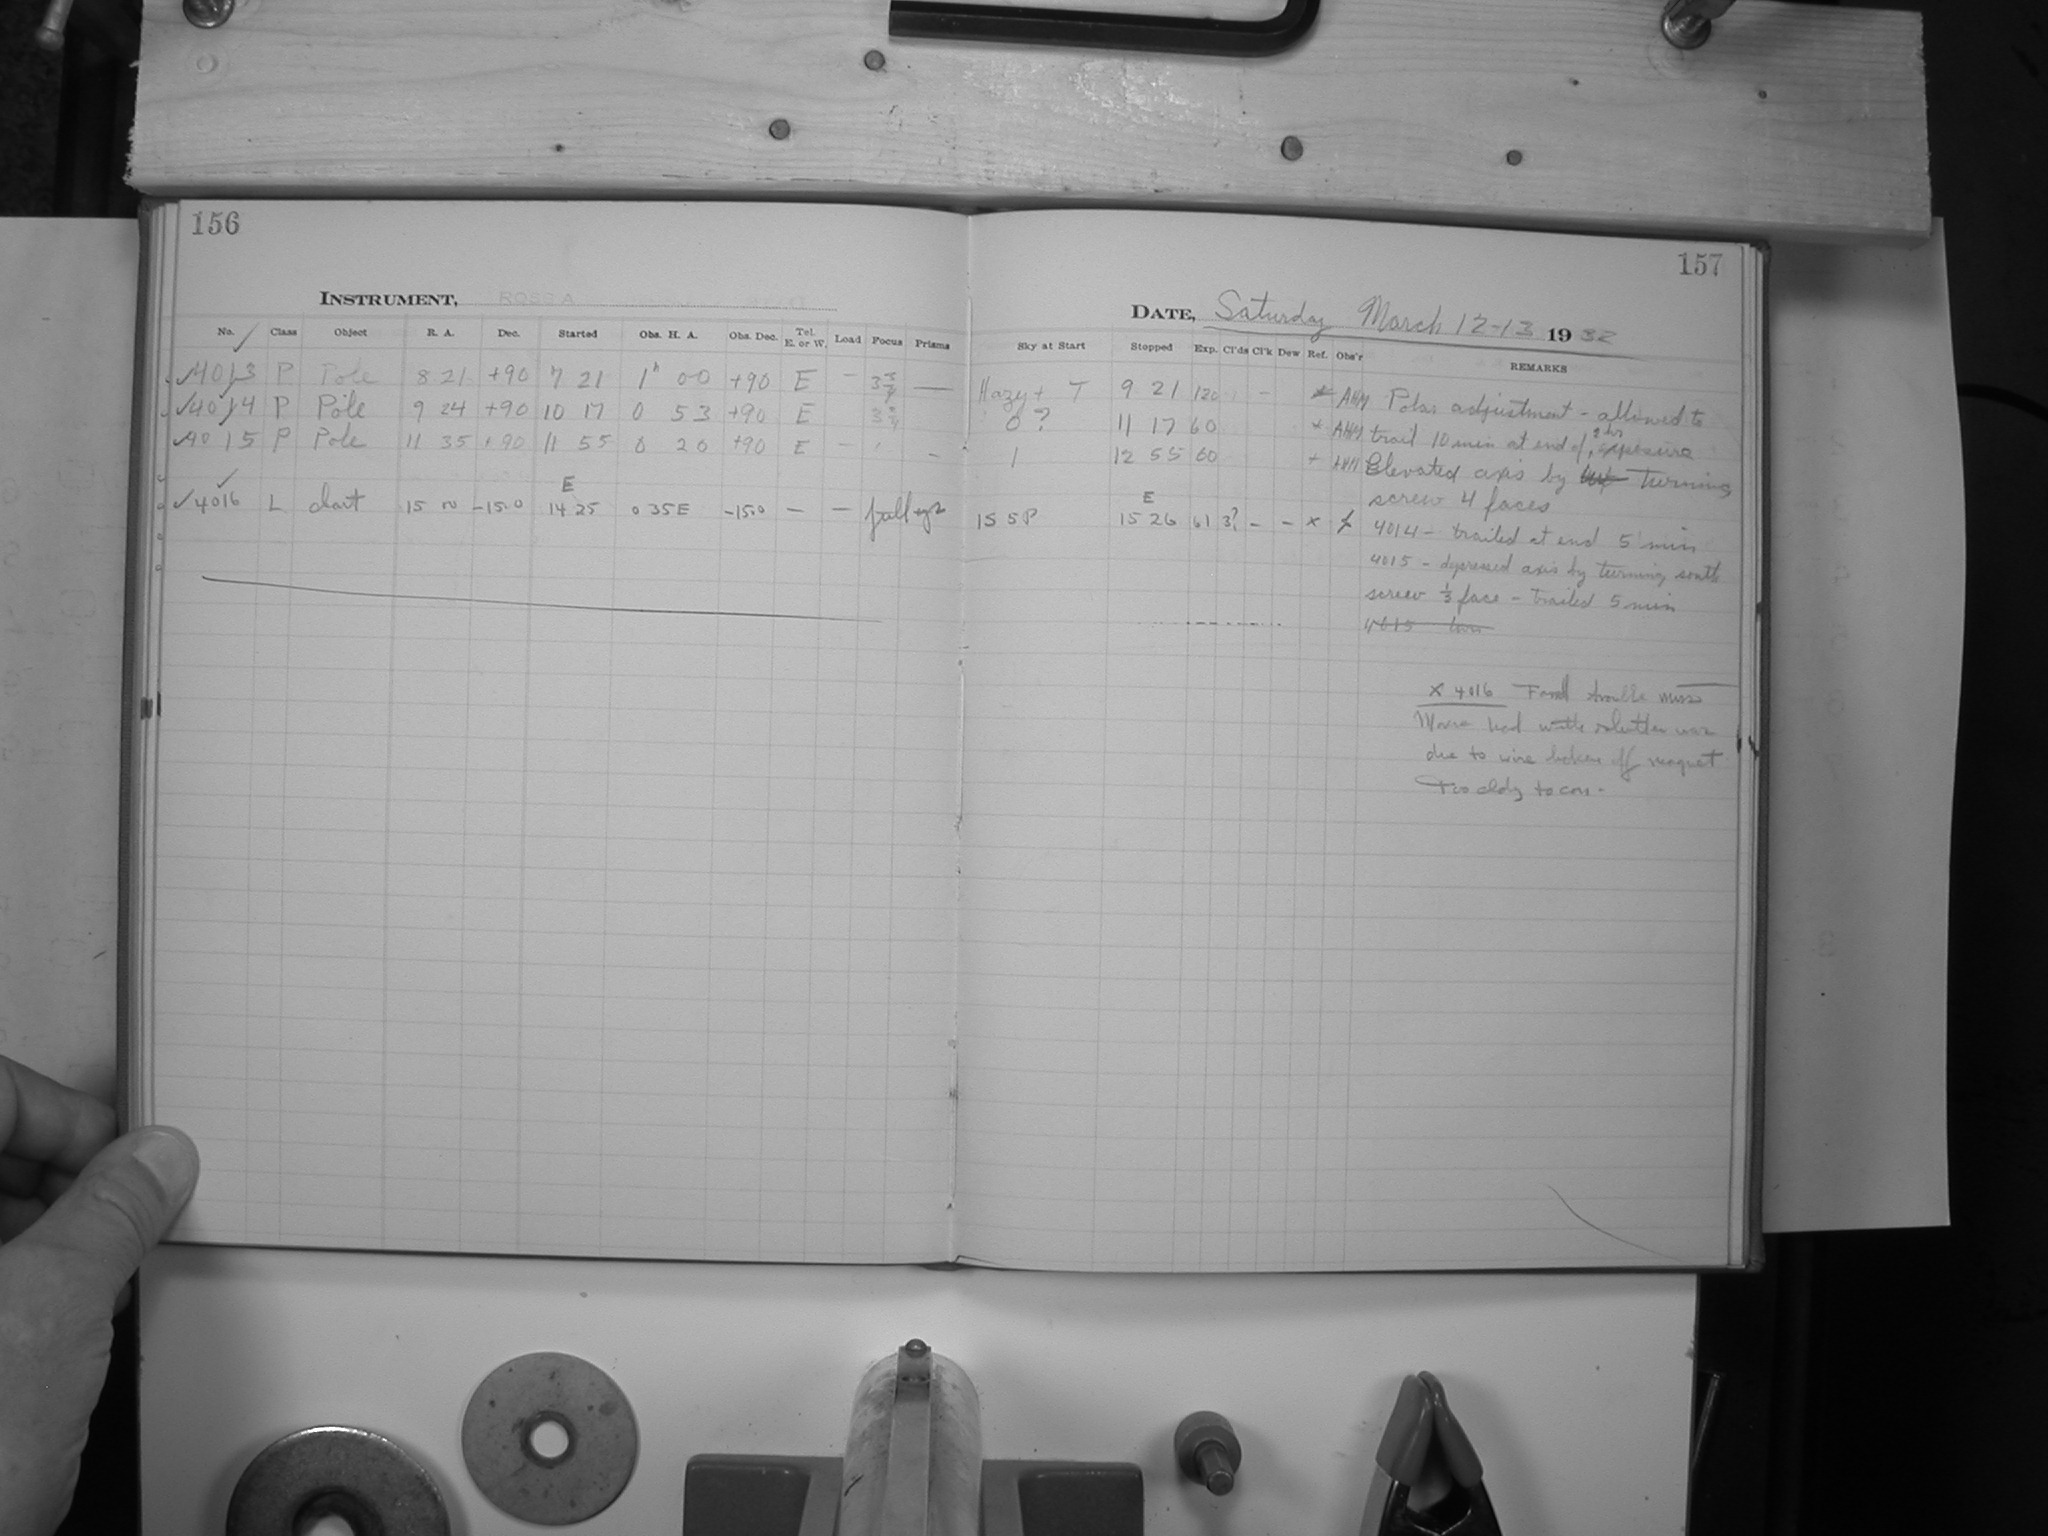 156
INSTRUMENT, ROSS A
No. Class Object R. A. Dec. Started Obs. H. A. Obs. Dec. Tel. E. or W. Load Focus Prisms
4013 P Pole 8 21 +90 7 21 1h 00 +90 E - —
4014 P Pole 9 24 +90 10 17 0 53 +90 E
4015 P Pole 11 35 +90 11 55 0 20 +90 E - -
E
4016 L chart 15 00 -15.0 14 25 0 35E -15.0 - -
157
DATE, Saturday March 12-13 1932
Sky at Start Stopped Exp. Cl'ds Cl'k Dew Ref. Obs'r REMARKS
Hazy + T 9 21 120 - AHM Polar adjustment - allowed to
0? 11 17 60 AHM trail 10 min at end of 2 hr exposure
1 12 55 60 AHM Elevated axis by turning
screw 4 faces
E
15 5P 15 26 61 3? - - x 4014 - trailed at end 5 min
4015 - depressed axis by turning south
screw 1/3 face - trailed 5 min
4015
x 4016 Found trouble miss
had with shutter was
due to wire broken off magnet
Too cldy to con.